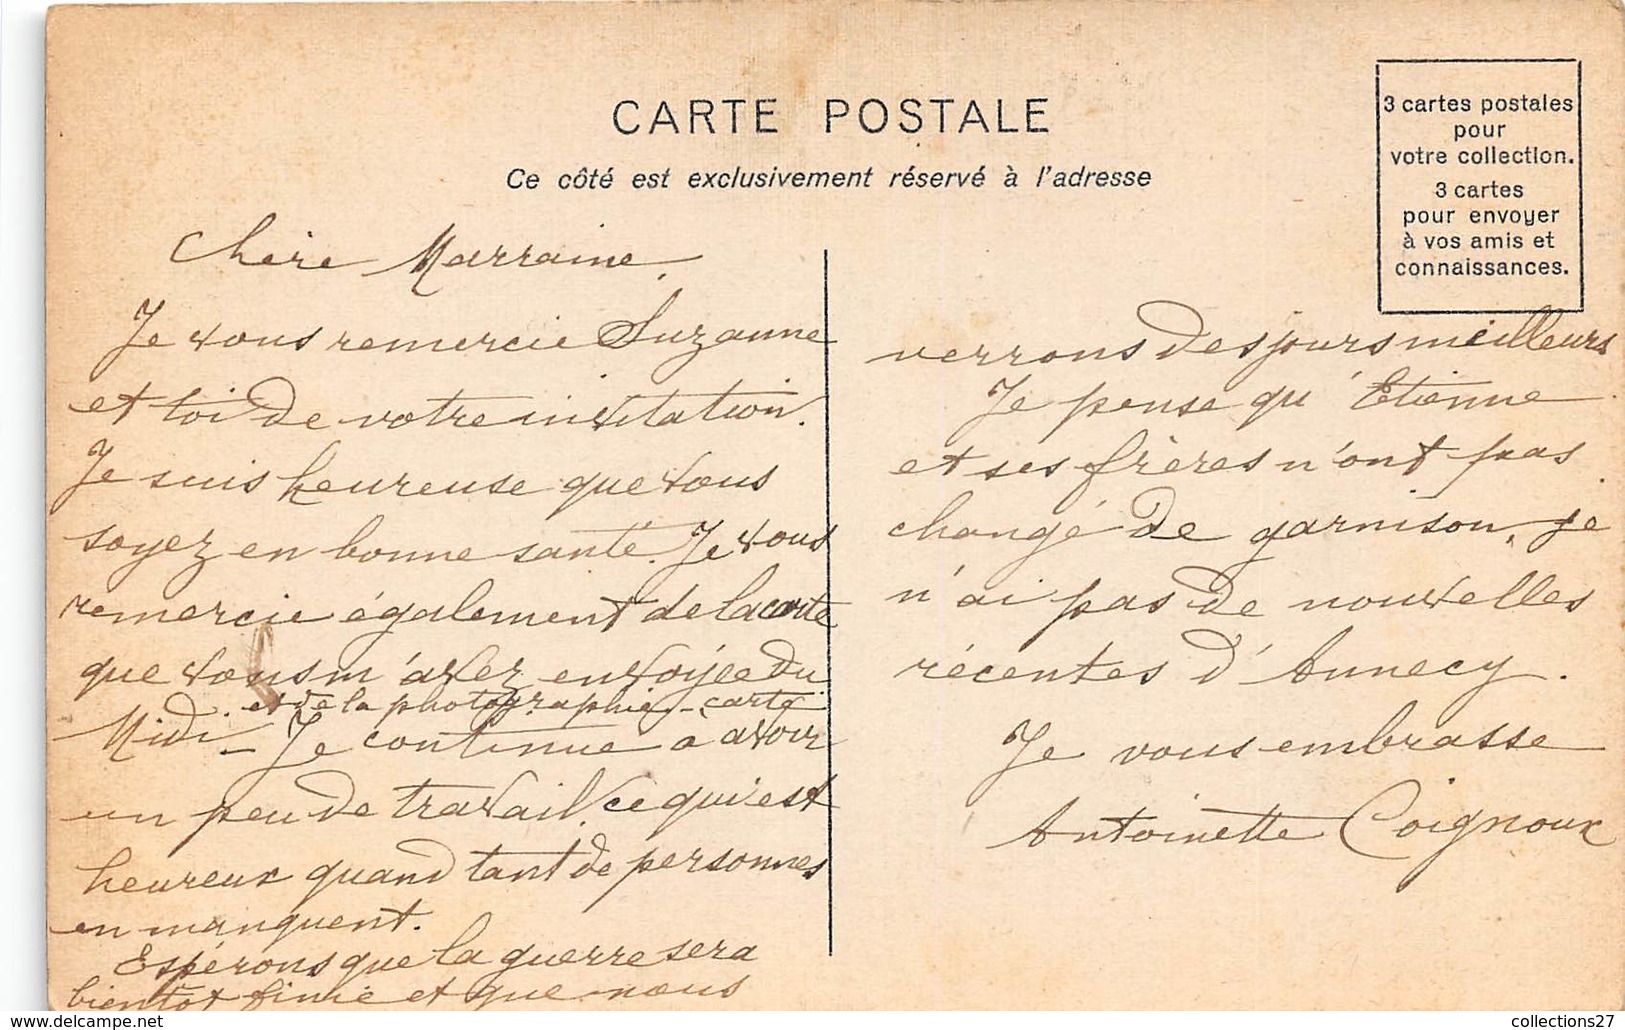 CARTE POSTALE
Ce côté est exclusivement réservé à l'adresse
3 cartes postales
pour
votre collection.
3 cartes
pour envoyer
à vos amis et
connaissances.
Chère Marraine,
Je vous remercie Suzanne
et toi de votre invitation.
Je suis heureuse que vous
soyez en bonne santé. Je vous
remercie également de la carte
que vous m'avez envoyée du
et de la photographie-carte
Midi. – Je continue a avoir
un peu de travail, ce qui est
heureux quand tant de personnes
en manquent.
Espérons que la guerre sera
bientôt finie et que nous
verrons des jours meilleurs
Je pense qu'Etienne
et ses frères n'ont pas
changé de garnison, je
n'ai pas de nouvelles
récentes d'Annecy.
Je vous embrasse
Antoinette Coignoux
www.delcampe.net
collections27